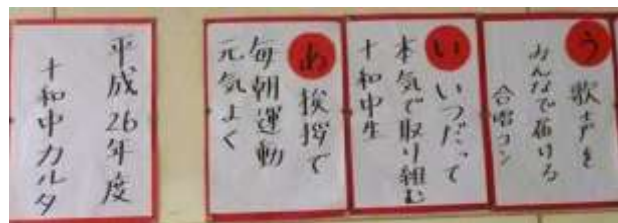 平成26年度
十和中カルタ
あ 挨拶で
毎朝運動
元気よく
い いつだって
本気で取り組む
十和中生
う 歌声を
みんなで届ける
合唱コン